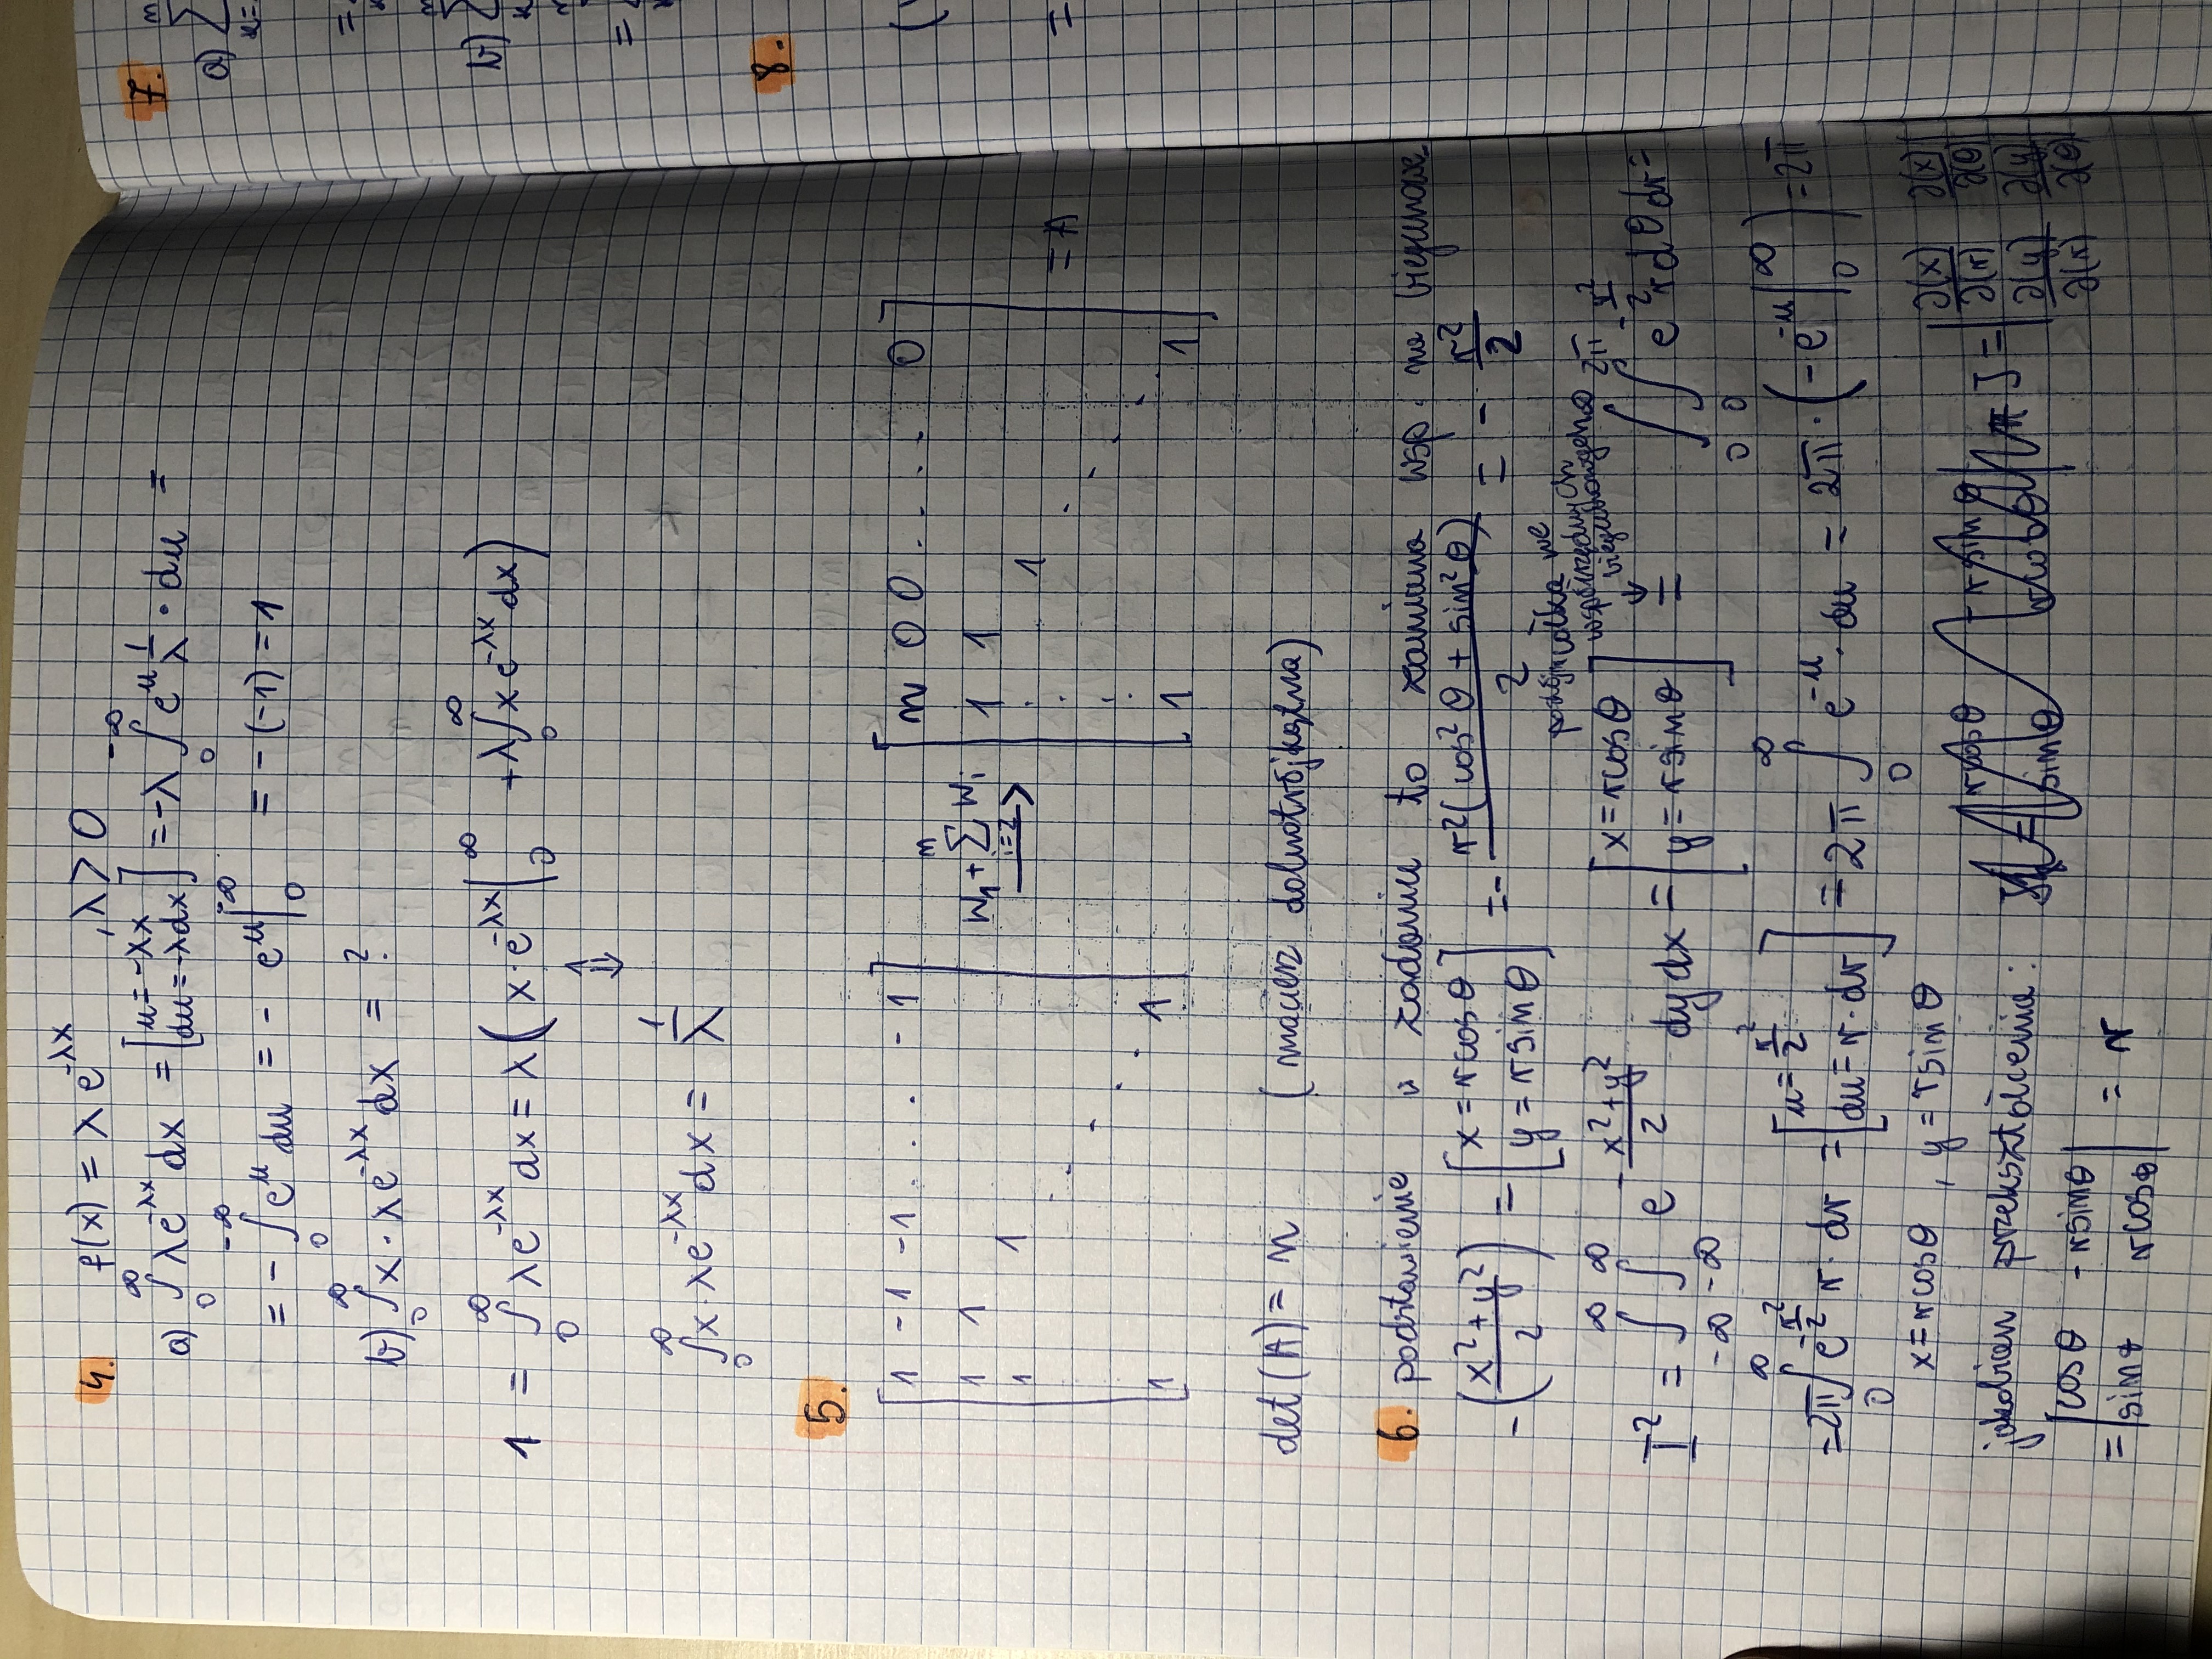 4. f(x) = λ e^{-λx} , λ > 0
a) ∫_0^∞ λe^{-λx} dx = [u = -λx, du = -λdx] = -λ ∫_0^{-∞} e^u 1/λ · du =
= - ∫_0^{-∞} e^u du = - e^u |_0^{-∞} = -(-1) = 1
b) ∫_0^∞ x · λe^{-λx} dx = ?
1 = ∫_0^∞ λe^{-λx} dx = λ ( x · e^{-λx} |_0^∞ + λ ∫_0^∞ x e^{-λx} dx )
⇕
∫_0^∞ x · λe^{-λx} dx = 1/λ
5.
[ 1 -1 -1 . . . -1 ; 1 1 ; 1 1 ; ⋱ ; 1 1 ] W_1 + ∑_{i=2}^n W_i → [ n 0 0 . . . . 0 ; 1 1 ; . 1 ; ⋮ ⋱ ; 1 1 ] = A
det(A) = n (macierz dolnotrójkątna)
6. podstawienie w zadaniu to zamiana wsp. na biegunowe
-( (x²+y²)/2 ) = [x = rcosθ, y = rsinθ] = - r²(cos²θ + sin²θ)/2 = - r²/2
współrzędnych
I² = ∫_{-∞}^∞ ∫_{-∞}^∞ e^{-(x²+y²)/2} dy dx = [x = rcosθ, y = rsinθ] = ∫_0^∞ ∫_0^{2π} e^{-r²/2} r dθ dr =
= 2π ∫_0^∞ e^{-r²/2} r · dr = [u = r²/2, du = r · dr] = 2π ∫_0^∞ e^{-u} · du = 2π · ( -e^{-u} |_0^∞ ) = 2π
x = rcosθ , y = rsinθ
jakobian przekształcenia: J = | ∂(x)/∂(r) ∂(x)/∂(θ) ; ∂(y)/∂(r) ∂(y)/∂(θ) |
= | cosθ -rsinθ ; sinθ rcosθ | = r
7.
a) ∑
b) ∑
8.